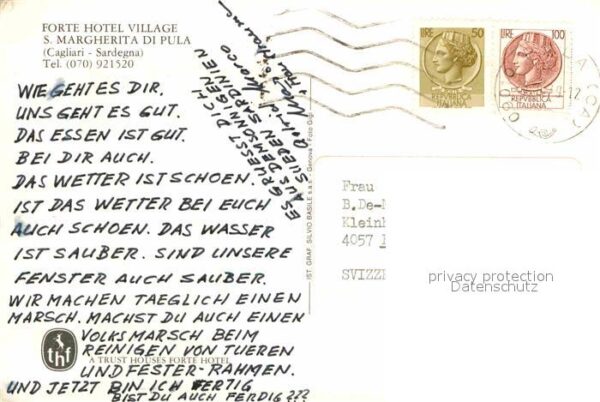 FORTE HOTEL VILLAGE
S. MARGHERITA DI PULA
(Cagliari - Sardegna)
Tel. (070) 921520
WIE GEHT ES DIR,
UNS GEHT ES GUT.
DAS ESSEN IST GUT.
BEI DIR AUCH.
DAS WETTER IST SCHOEN.
IST DAS WETTER BEI EUCH
AUCH SCHOEN. DAS WASSER
IST SAUBER. SIND UNSERE
FENSTER AUCH SAUBER.
WIR MACHEN TAEGLICH EINEN
MARSCH. MACHST DU AUCH EINEN
VOLKSMARSCH BEIM
REINIGEN VON TUEREN
UND FESTER-RAHMEN.
UND JETZT BIN ICH FERTIG
BIST DU AUCH FERDIG ???
thf
A TRUST HOUSES FORTE HOTEL
ES GRUESST DICH
AUS DEM SONNIGEN
SUEDEN SARDINIEN
Marco
IST. GRAF. SILVIO BASILE s.a.s. - Genova - Foto Gigi
LIRE 50
REPUBBLICA
ITALIANA
LIRE 100
REPUBBLICA
ITALIANA
Frau
B.De-
Klein
4057
SVIZZE
privacy protection
Datenschutz